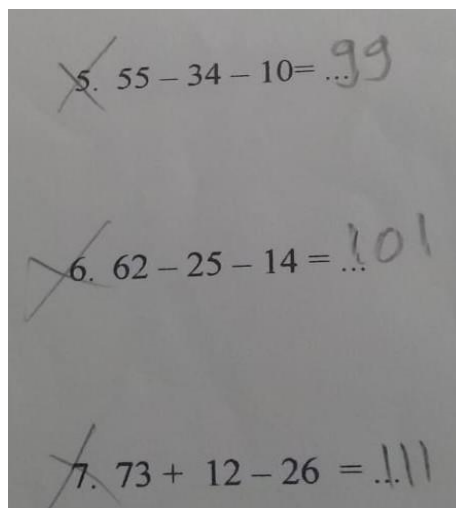 5. 55 – 34 – 10= ...99
6. 62 – 25 – 14 = ...101
7. 73 + 12 – 26 = ...111